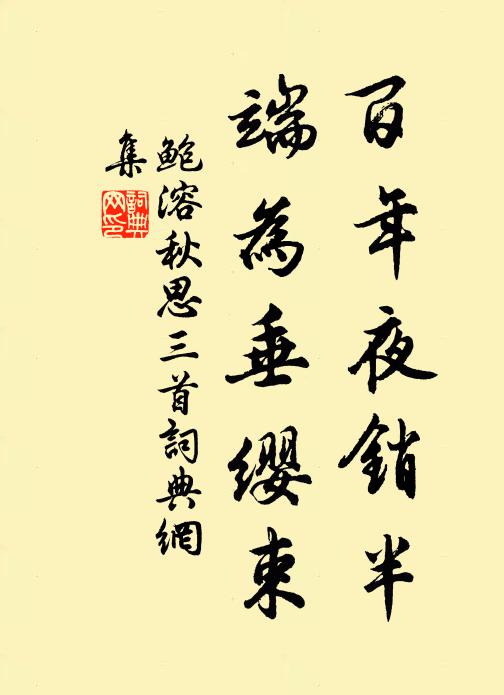 百年夜銷半
端為垂纓束
鲍溶秋思三首詞典網
集
詞典
网印